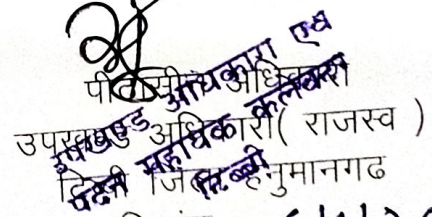 पीठासीन अधिकारी
उपखण्ड अधिकारी ( राजस्व )
टिब्बी जिला हनुमानगढ
उपखण्ड अधिकारी एवं
पदेन सहायक कलेक्टर
टिब्बी